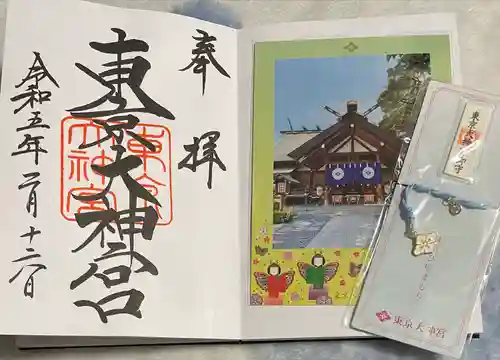 奉拝
東京大神宮
令和五年二月十二日
東京大神宮
東京大神宮